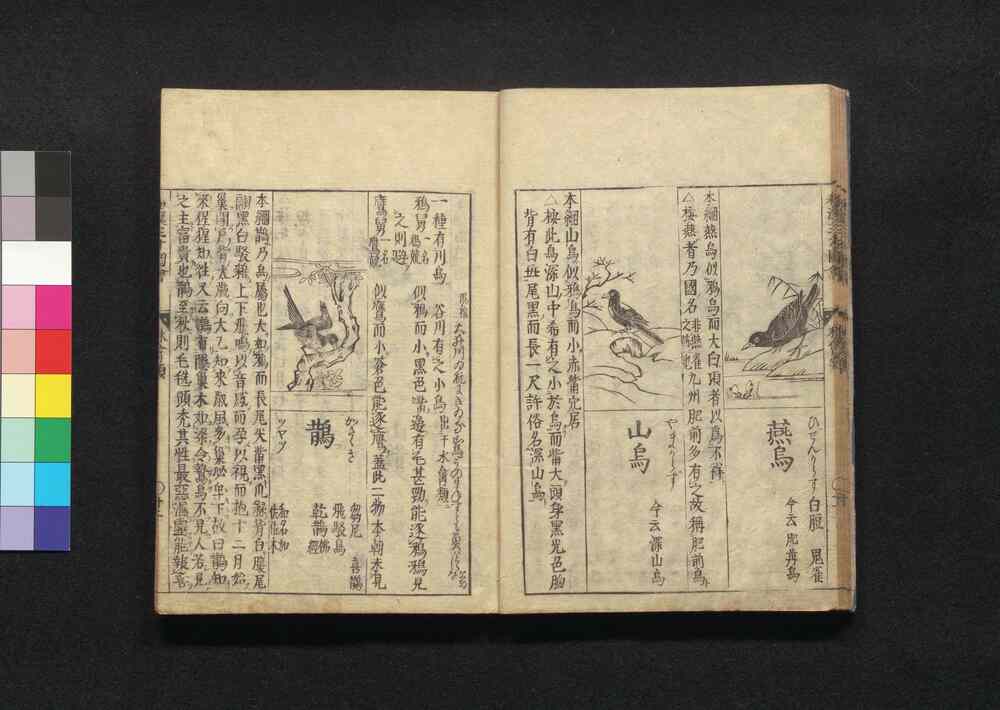 燕烏
ひぜんがらす
白脰
鬼雀
今云肥前烏
本綱燕烏似鴉烏而大白項者以爲不祥
△
山烏
やまがらす
今云深山烏
本綱山烏似鴉烏而小赤觜穴居
△棲此烏深山中希有之小於烏而觜大頭身黒光色胸
背有白斑尾黒而長一尺許俗名深山烏
一種有川烏
谷川有之小烏出于水禽類
鴉舅
似鴉而小黒色觜邊有毛甚勁能逐鴉鴉見
之則避
鷹舅
似鷹而小蒼色能逐鷹蓋此二物本朝未見
鵲
かさゝき
ツヤツ
芻尼
喜鵲
飛駁烏
乾鵲
本綱鵲乃烏屬也大如鴉而長尾尖觜黒爪緑背白腹尾
翮黒白駁雜上下飛鳴以音感而孕以視而抱十二月始
巢開戸背太歳向太乙知來歳風多巢必卑下故曰鵲知
來猩猩知往又云鵲有隱巢木如梁令鷙鳥不見人若見
之主富貴也鵲至秋則毛毨頭禿其性最惡濕靈能報喜